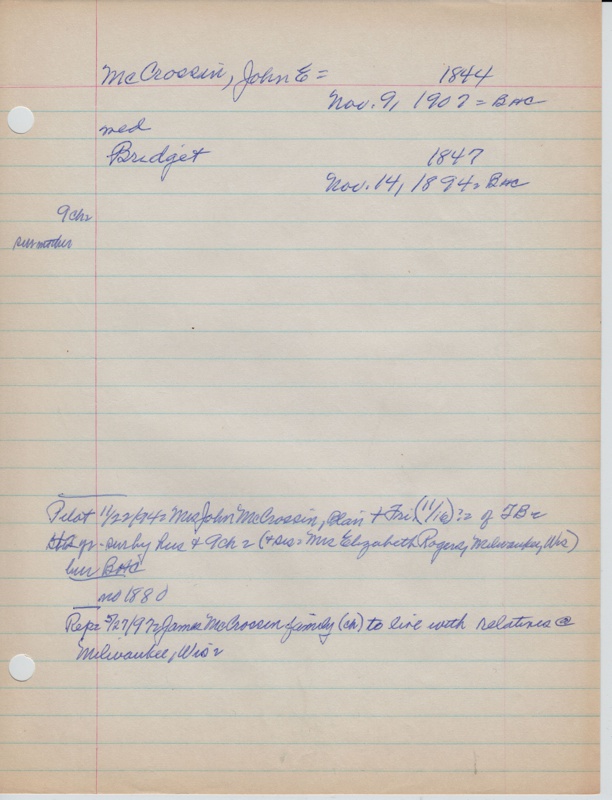 McCrossin, John E = 1844
Nov. 9, 1907 = BHC
med
Bridget 1847
Nov. 14, 1894 = BHC
9 ch =
mother
Pilot 11/22/94 = Mrs John McCrossin, Blair + Fri. (11/16) ?= of TB =
yr - sur by hus + 9 ch = (+ sis = Mrs Elizabeth Rogers, Milwaukee, Wis)
bur BHC
no 1880
Rep = 5/27/97 = James McCrossin family (ch) to live with relatives @
Milwaukee, Wis =